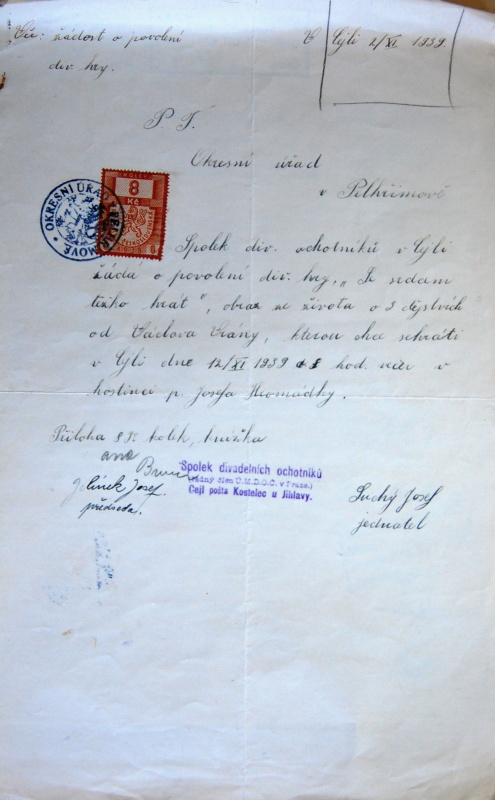 Věc: žádost o povolení
div. hry.
V Cejli 2/XI 1939.
P. T.
Okresní úřad
v Pelhřimově
KOLEK
8
Kč
OKRESNÍ ÚŘAD
Spolek div. ochotníků v Cejli
žádá o povolení div. hry, „
těžko hrát", obraz ze života o 3 dějstvích
od Václava Vrány, kterou chce sehráti
v Cejli dne 12/XI 1939 v 8 hod. večer v
hostinci p. Josefa Hromádky.
Příloha 8 K kolek, knížka
ano
Spolek divadelních ochotníků
(řádný člen Ú.M.D.O.Č. v Praze.)
Cejl pošta Kostelec u Jihlavy.
Jelínek Josef.
předseda.
Suchý Josef
jednatel